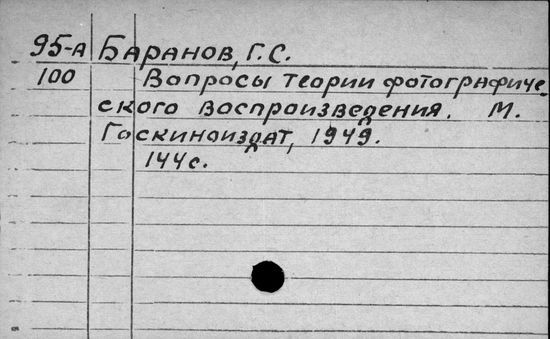 95-А Баранов, Г.С.
100 Вопросы теории фотографиче-
ского воспроизведения. М.
Госкиноиздат, 1949.
144с.